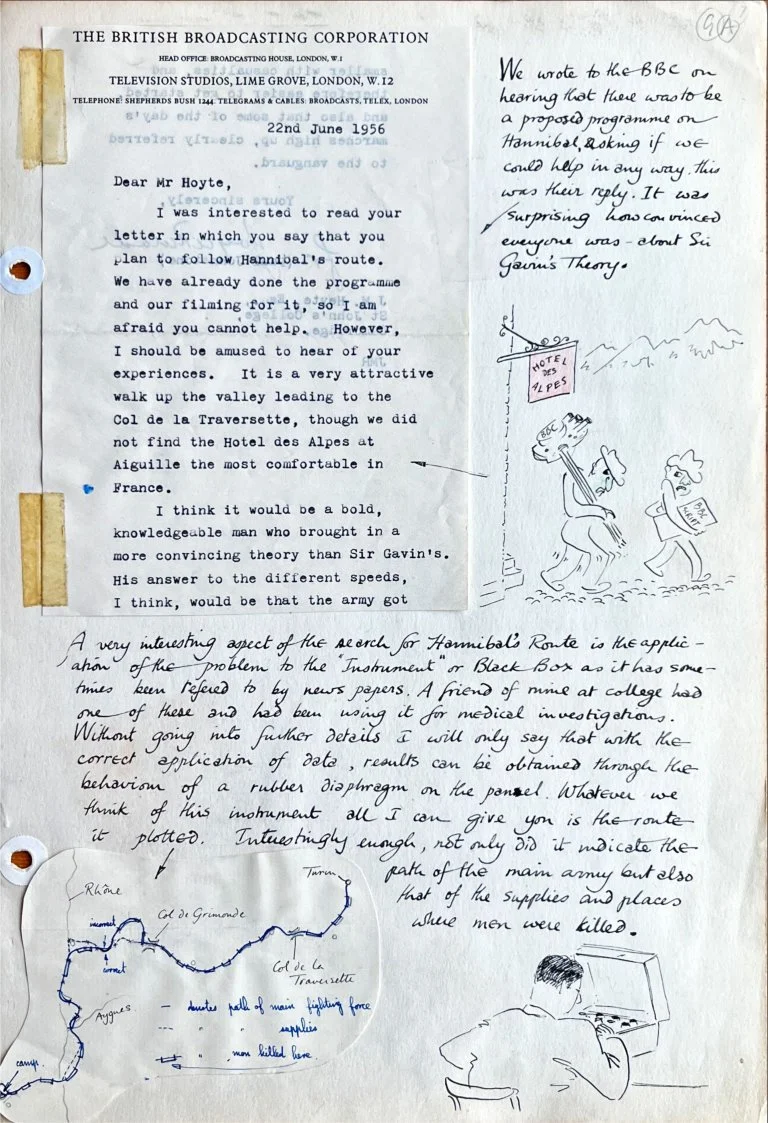 9 A
THE BRITISH BROADCASTING CORPORATION
HEAD OFFICE: BROADCASTING HOUSE, LONDON, W.1
TELEVISION STUDIOS, LIME GROVE, LONDON, W.12
TELEPHONE: SHEPHERDS BUSH 1244. TELEGRAMS & CABLES: BROADCASTS, TELEX, LONDON
22nd June 1956
Dear Mr Hoyte,
I was interested to read your
letter in which you say that you
plan to follow Hannibal's route.
We have already done the programme
and our filming for it, so I am
afraid you cannot help. However,
I should be amused to hear of your
experiences. It is a very attractive
walk up the valley leading to the
Col de la Traversette, though we did
not find the Hotel des Alpes at
Aiguille the most comfortable in
France.
I think it would be a bold,
knowledgeable man who brought in a
more convincing theory than Sir Gavin's.
His answer to the different speeds,
I think, would be that the army got
smaller with casualties, and
therefore easier to get started,
and also that some of the day's
marches high up, clearly referred
to the vanguard.
Yours sincerely,
We wrote to the BBC on
hearing that there was to be
a proposed programme on
Hannibal, asking if we
could help in any way. this
was their reply. It was
surprising how convinced
everyone was - about Sir
Gavin's Theory.
HOTEL
DES
ALPES
BBC
BBC
SCRIPT
A very interesting aspect of the search for Hannibal's Route is the applic-
ation of the problem to the "Instrument" or Black Box as it has some-
times been refered to by news papers. A friend of mine at college had
one of these and had been using it for medical investigations.
Without going into further details I will only say that with the
correct application of data, results can be obtained through the
behaviour of a rubber diaphragm on the pannel. Whatever we
think of this instrument all I can give you is the route
it plotted. Interestingly enough, not only did it indicate the
path of the main army but also
that of the supplies and places
where men were killed.
Turin
Rhône
incorrect
Col de Grimonde
correct
Col de La
Traversette
Aygues
denotes path of main fighting force
" " supplies
" men killed here
camp.